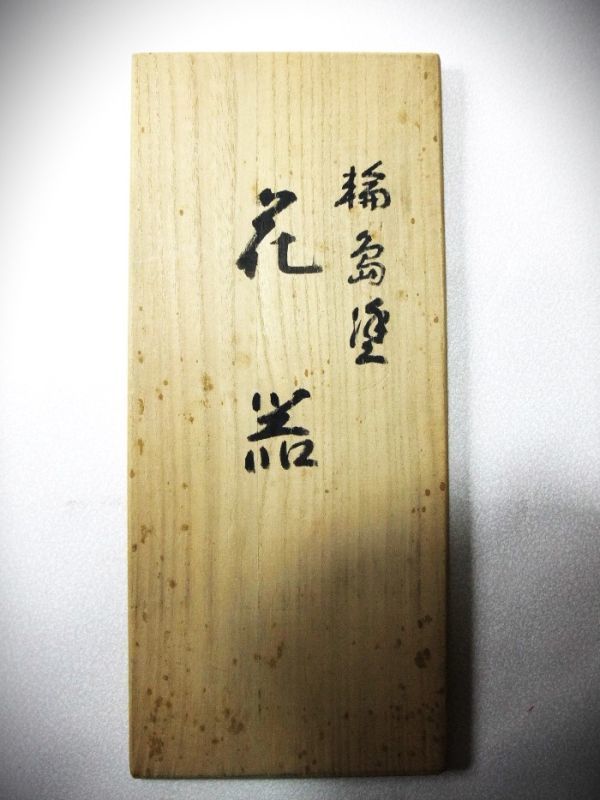 輪島塗
花器